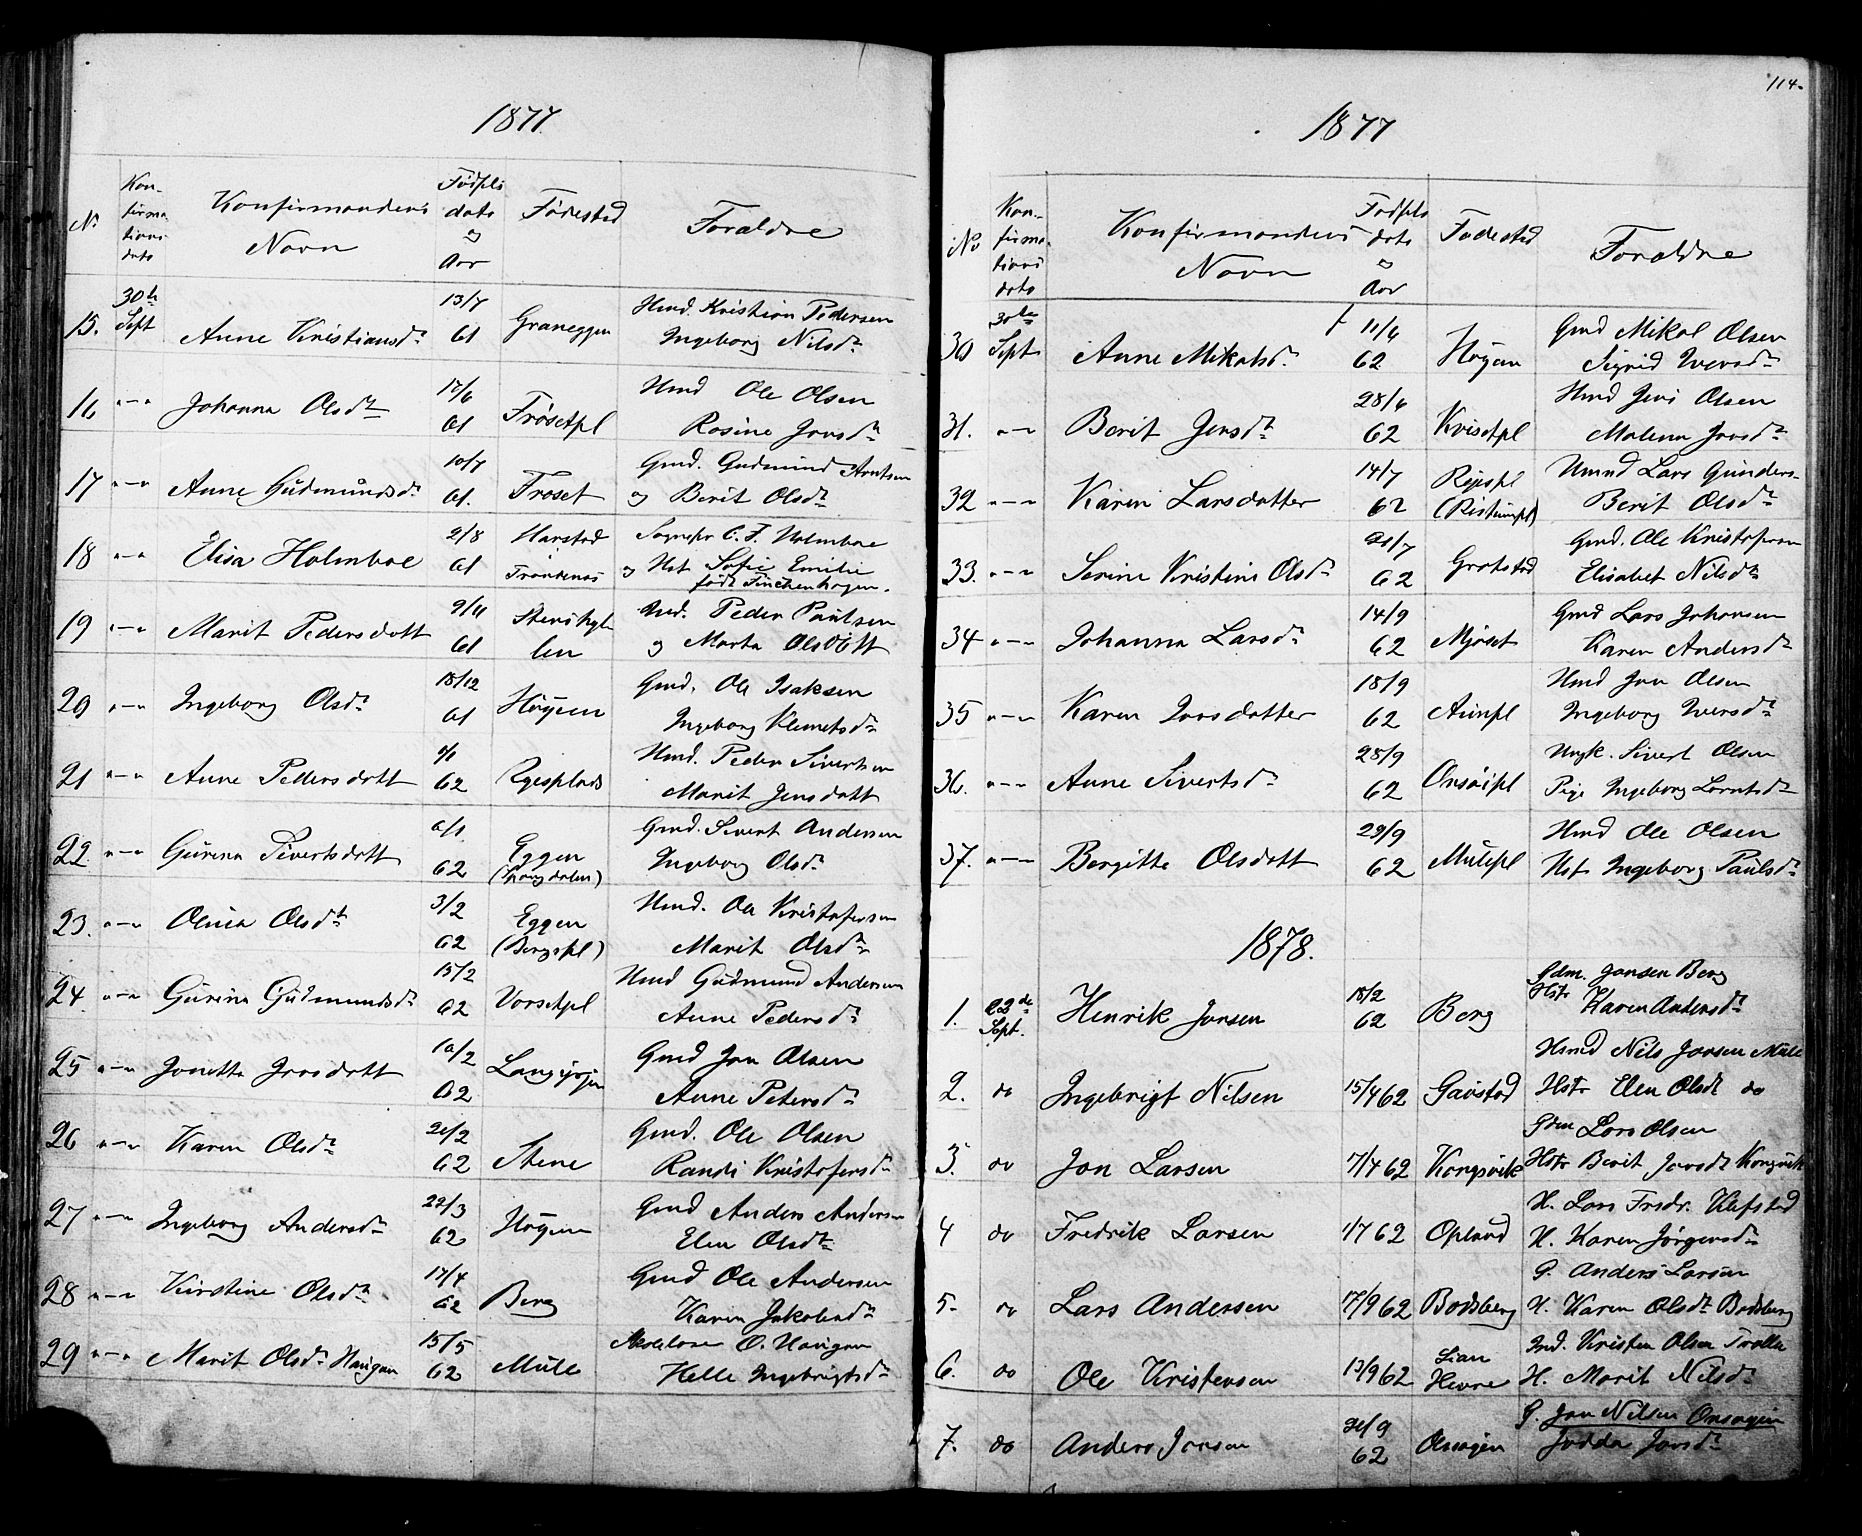 1877
No Kon-firma-tions dato Konfirmandens Navn Fødsels dato og Aar Fødested Forældre
15. 30te Sept Anne Kristiansdtr 13/7 61 Graneggen Hmd. Kristian Pedersen
Ingeborg Nilsdtr
16 "-" Johanna Olsdtr 17/6 61 Frösetpl Hmd Ole Olsen
Rosine Jonsdtr
17 "-" Anne Gudmundsdr 10/7 61. Fröset Gmd. Gudmund Arntsen
og Berit Olsdtr
18 "-" Elisa Holmboe 2/8 61 Harstad Trondenes Sognepr C. F. Holmboe
og Hst Sofie Emilie
født Finckenhagen.
19 "-" Marit Pedersdatt 9/11 61 Peder Paulsen
og Marta Olsdatt
20 "-" Ingeborg Olsdtr 18/12 61 Höyem Gmd. Ole Isaksen
Ingeborg Klemetsdtr
21 "-" Anne Pedersdatt 62 Ryesplads Hmd. Peder Sivertsen
Marit Jensdatt
22. "-" Gurina Sivertsdatt 6/1 62 Eggen Gmd. Sivert Andersen
Ingeborg Olsdtr
23. "-" Olina Olsdtr 3/2 62 Eggen (Bergspl) Hmd. Ole Kristofersen
Marit Olsdtr
24. "-" Gurina Gudmundsdr 15/2 62 Vorsetpl Hmd Gudmund Andersen
Anne Pedersdtr
25 "-" Jonetta Jonsdatt 10/2 62 Gmd Jon Olsen
Anne Petersdtr
26 "-" Karen Olsdtr 21/2 62 Stene Gmd. Ole Olsen
Randi Kristofersdtr
27 "-" Ingeborg Andersdtr 22/3 62 Höyem Gmd Anders Andersen
Elen Olsdtr
28 "-" Kirstine Olsdtr 17/4 62 Berg Gmd Ole Andersen
Karen Jakobsdtr
29 "-" Marit Olsdtr Haugan 15/5 62 Mule O. Haugan
Helle Ingebrigtsdtr
114.
1877
No Kon-firma-tions dato Konfirmandens Navn Fødsels dato og Aar Fødested Forældre
30 30te Sept Anne Mikalsdr 11/6 62 Höyem Gmd Mikal Olsen
Sigrid Iversdtr
31. "-" Berit Jensdtr 28/6 62 Kvisetpl Hmd Jens Olsen
Malena Jonsdtr
32 "-" Karen Larsdatter 14/7 62 Hmd Lars Gunders-
Berit Olsdtr
33. "-" Serine Kristine Olsdr 21/7 62 Grotstad Gmd. Ole Kristofersen
Elisabet Nilsdtr
34 "-" Johanna Larsdtr 14/9 62 Mjöset Gmd Lars Johansen
Karen Andersdtr
35 "-" Karen Jonsdatter 18/9 62 Aunpl Hmd Jon Olsen
Ingeborg Iversdtr
36. "-" Anne Sivertsdtr 28/9 62 Onsöipl Ungk. Sivert Olsen
Pige Ingeborg Lorntsdtr
37. "-" Bergitte Olsdatt 29/9 62 Mulepl Hmd Ole Olsen
Hst Ingeborg Paulsdtr
1878.
1. 22de Sept. Henrik Jonsen 18/2 62 Berg Gdm. Jonsen Berg
Hstr Karen Andersdtr
2. do Ingebrigt Nilsen 15/4 62 Gaustad Hsmd Nils Jonsen Mule
Hstr Elen Olsdt do
3. do Jon Larsen 7/4 62 Kongsvik Gdm Lars Olsen
Hstr Berit Jonsdt Kongsvik
4 do Fredrik Larsen 1/7 62 Opland H. Lars Fredr. Klefstad
H. Karen Jörgensdtr
5. do Lars Andersen 17/9 62 Bodsberg G. Anders Larsen
H. Karen Olsdt Bodsberg
6. do Ole Kristensen 13/9 62 Lian Hmd. Kristen Olsen
H. Marit Nilsdtr
7. do Anders Jonsen 21/9 62 Onsöien G. Jon Nilsen Onsøyen
Jonsdtr